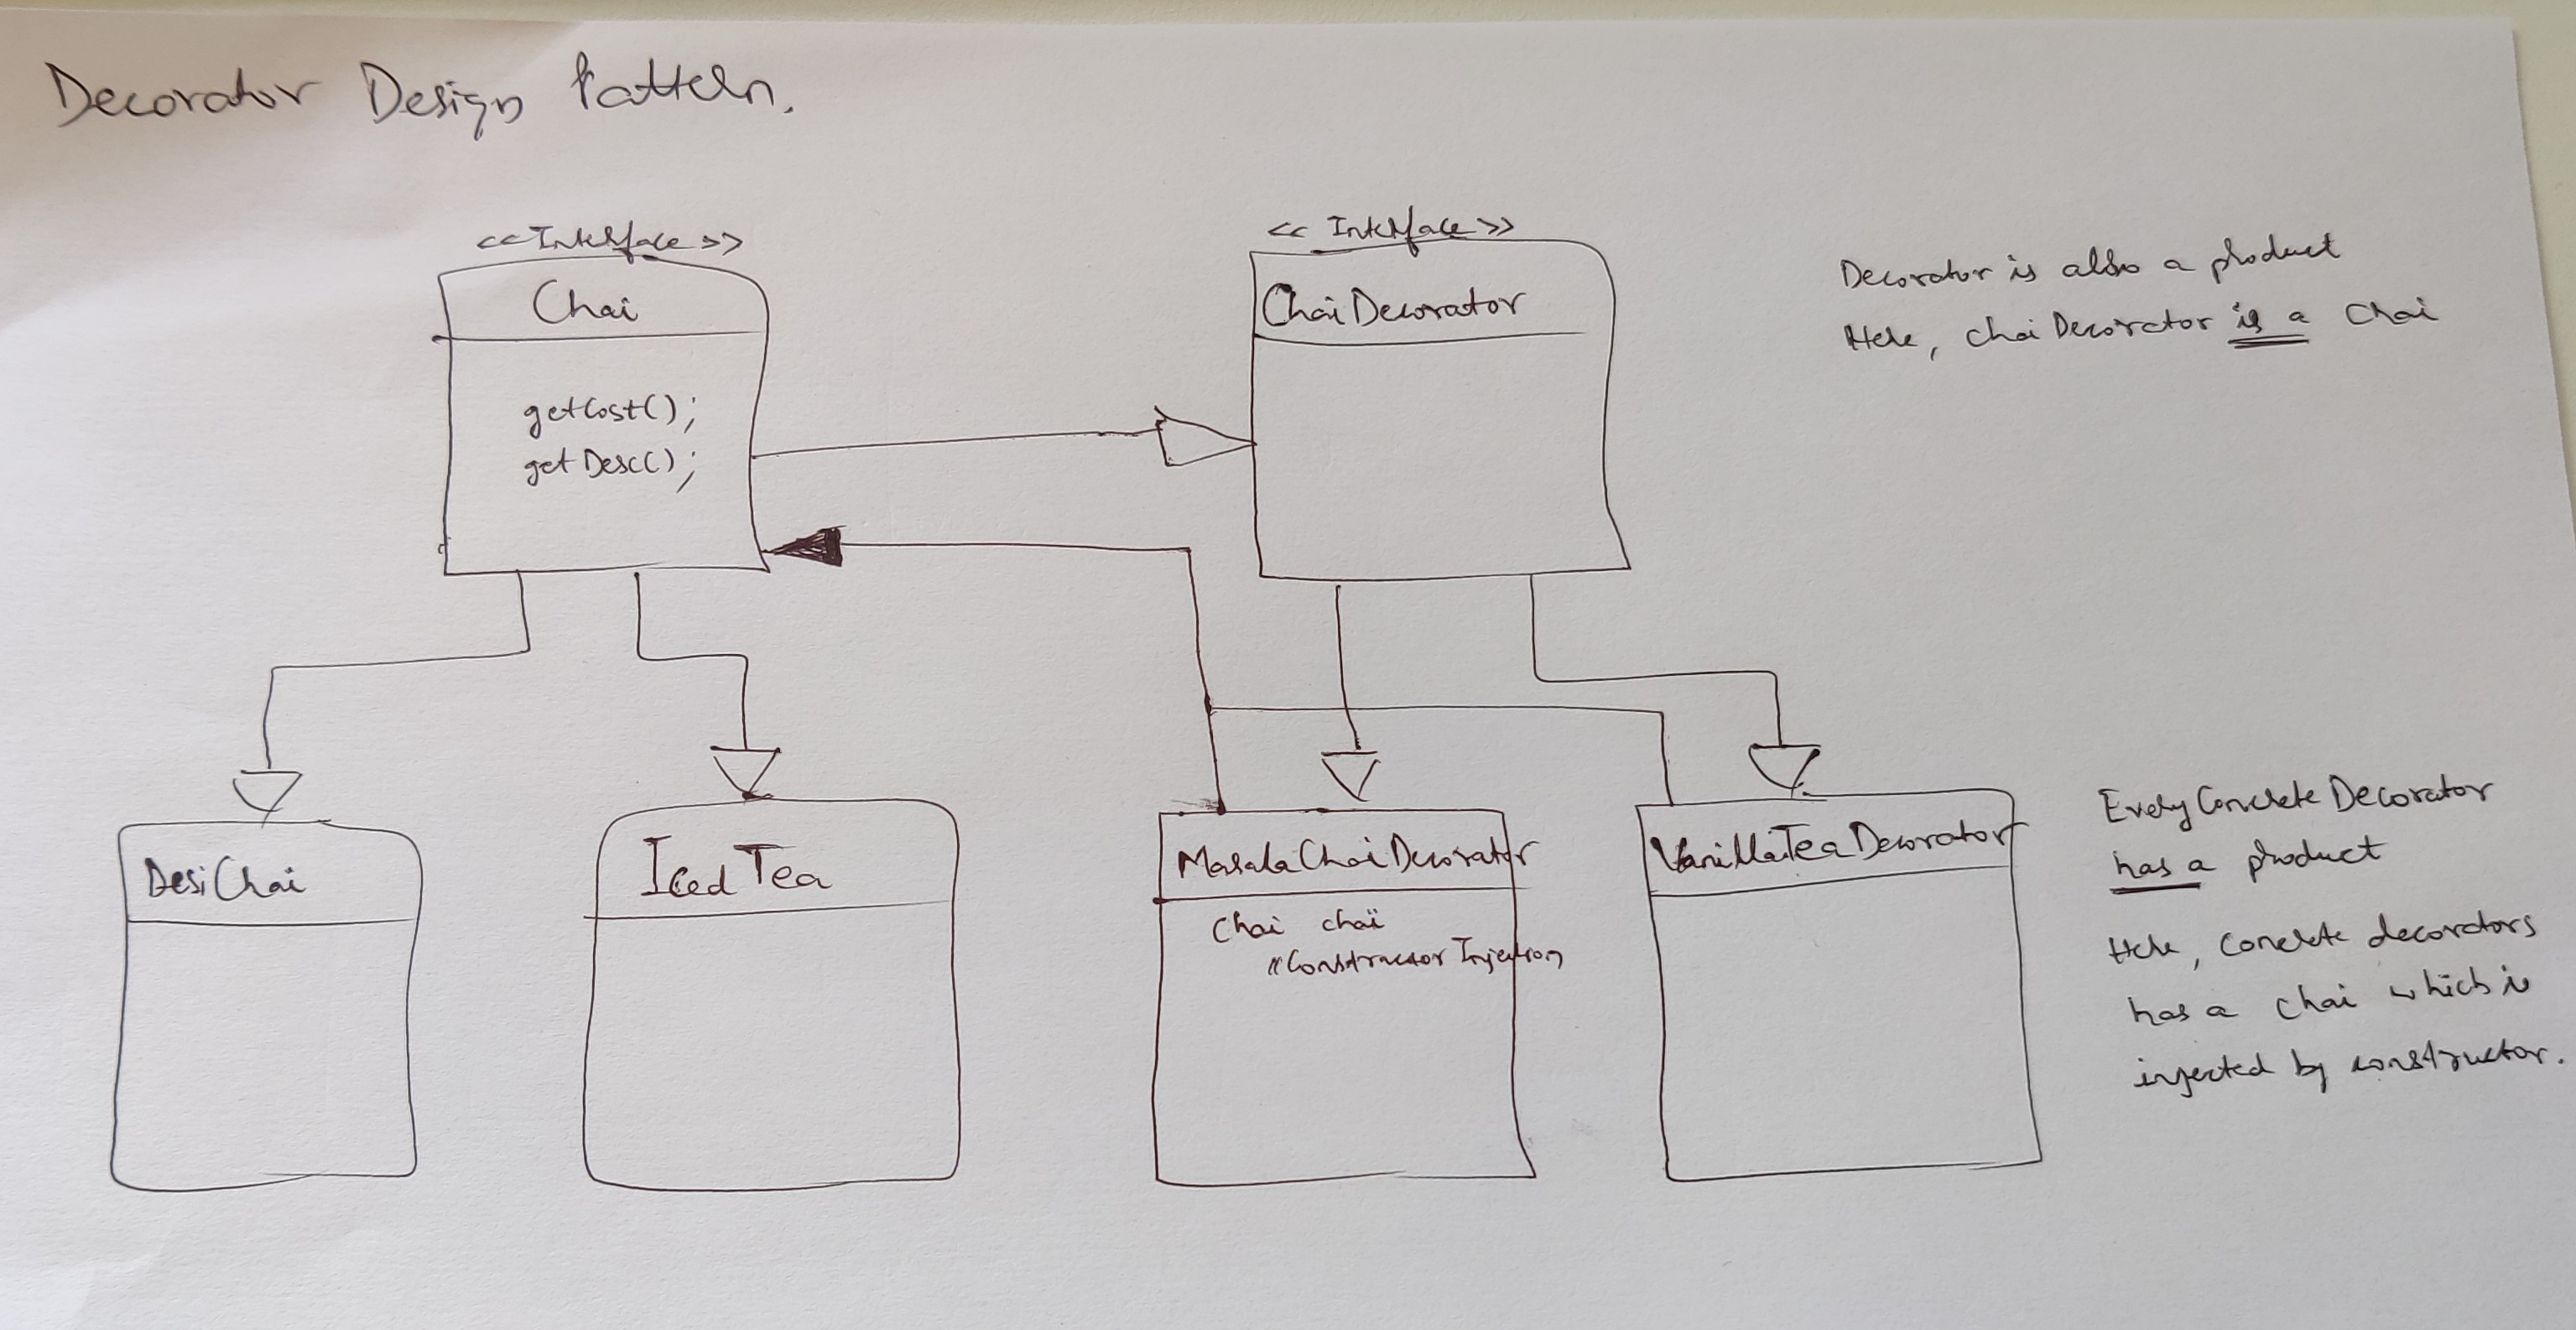 Decorator Design Pattern.
<<Interface>>
Chai
getCost();
getDesc();
<< Interface >>
ChaiDecorator
Decorator is also a product
Here, chaiDecorator is a Chai
DesiChai
Iced Tea
MasalaChaiDecorator
Chai chai
//Constructor Injection
VanillaTeaDecorator
Every Concrete Decorator
has a product
Here, concrete decorators
has a chai which is
injected by constructor.